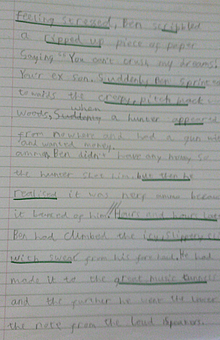 Feeling stressed, Ben scribbled
a ripped up piece of paper
Saying "You can't crush my dreams
Your ex son. Suddenly Ben sprinted
towards the creepy, pitch black
woods, Suddenly when a hunter appeared
from nowhere and had a gun
"and wanted money.
Ben didn't have any money so
the hunter shot him. but then he
realised it was nerf
it bounced of him. Hours and hours
Ben had climbed the icy, slippery
with sweat from his forehead. He had
made it to the great music
and the further he went the louder
the note from the loud speakers.